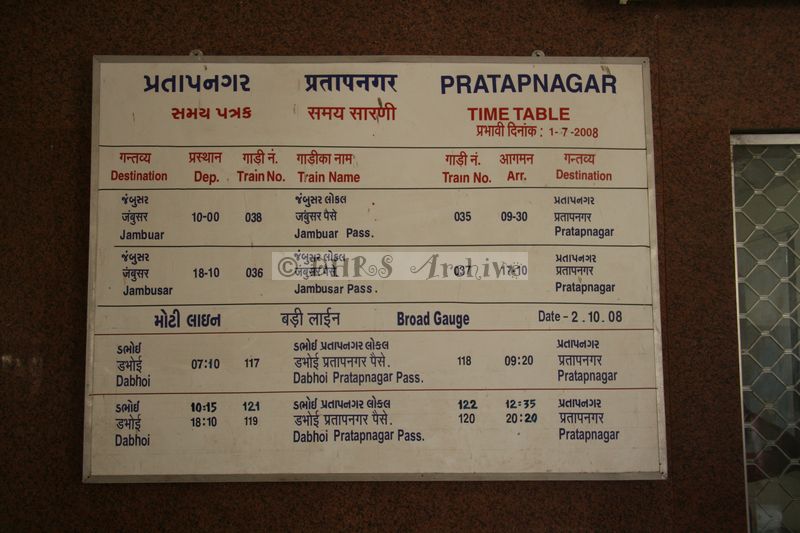 પ્રતાપનગર प्रतापनगर PRATAPNAGAR
સમય પત્રક समय सारणी TIME TABLE
प्रभावी दिनांक : 1-7-2008
गन्तव्य प्रस्थान गाड़ी नं. गाडीका नाम गाड़ी नं. आगमन गन्तव्य
Destination Dep. Train No. Train Name Train No. Arr. Destination
જંબુસર જંબુસર લોકલ પ્રતાપનગર
जंबुसर 10-00 038 जंबुसर पैसे 035 09-30 प्रतापनगर
Jambuar Jambuar Pass. Pratapnagar
જંબુસર જંબુસર લોકલ પ્રતાપનગર
जंबुसर 18-10 036 जंबुसर पैसे 037 17-10 प्रतापनगर
Jambusar Jambusar Pass. Pratapnagar
© DHRS Archive
મોટી લાઇન बड़ी लाईन Broad Gauge Date - 2.10.08
ડભોઈ ડભોઈ પ્રતાપનગર લોકલ પ્રતાપનગર
डभोई 07:10 117 डभोई प्रतापनगर पैसे. 118 09:20 प्रतापनगर
Dabhoi Dabhoi Pratapnagar Pass. Pratapnagar
ડભોઈ 10:15 121 ડભોઈ પ્રતાપનગર લોકલ 122 12=35 પ્રતાપનગર
डभोई 18:10 119 डभोई प्रतापनगर पैसे. 120 20:20 प्रतापनगर
Dabhoi Dabhoi Pratapnagar Pass. Pratapnagar